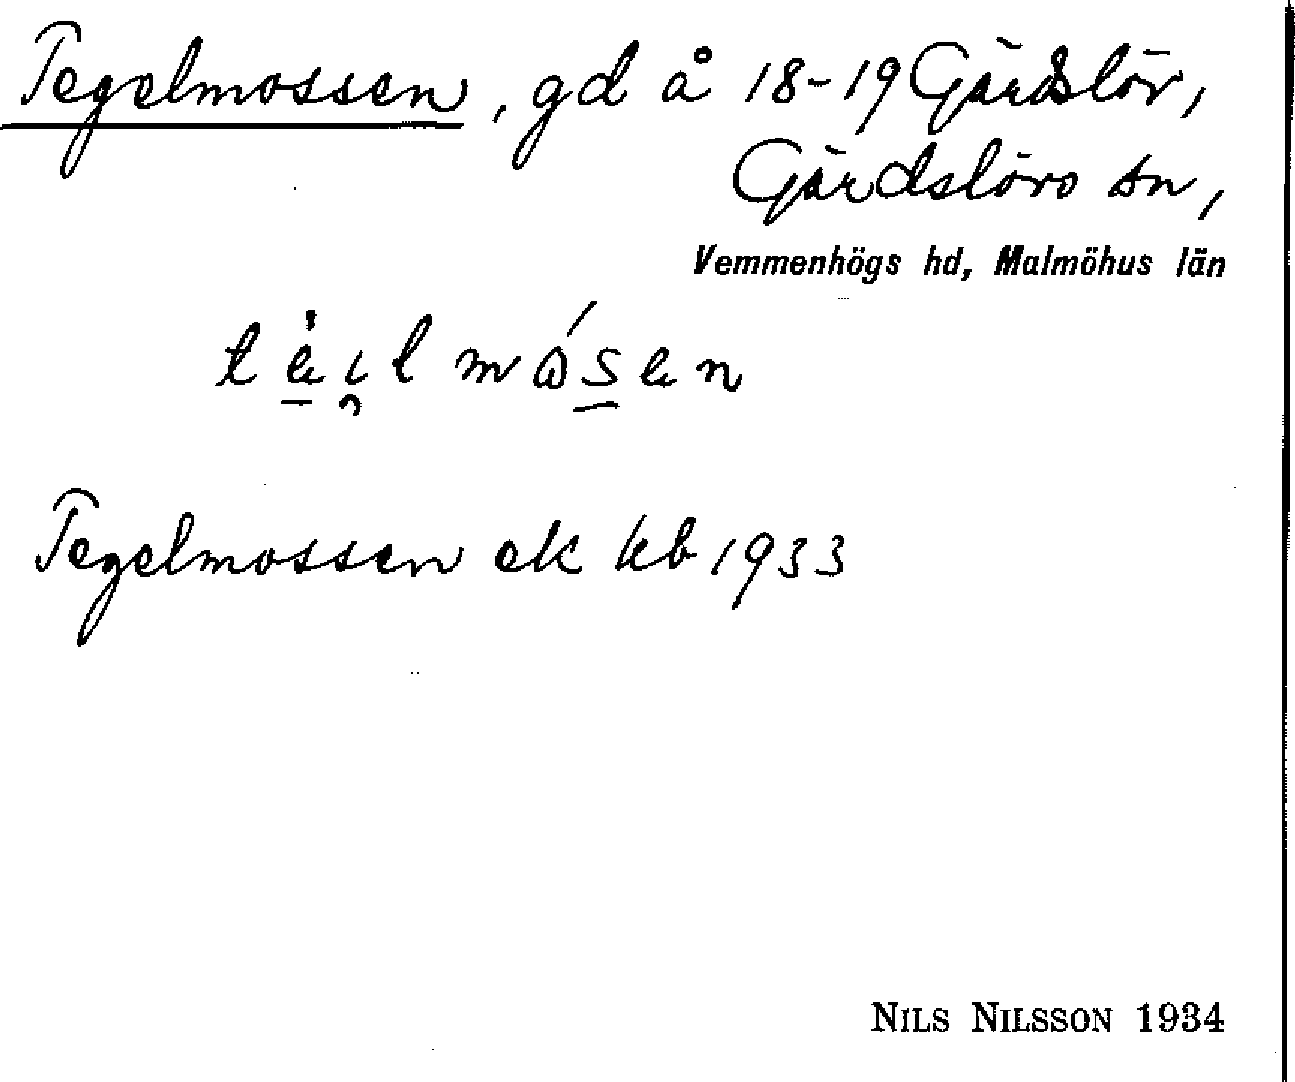 Tegelmossen, gd å 18-19 Gärdslöv,
Gärdslövs sn,
Vemmenhögs hd, Malmöhus län
Tegelmossen ek kb 1933
NILS NILSSON 1934